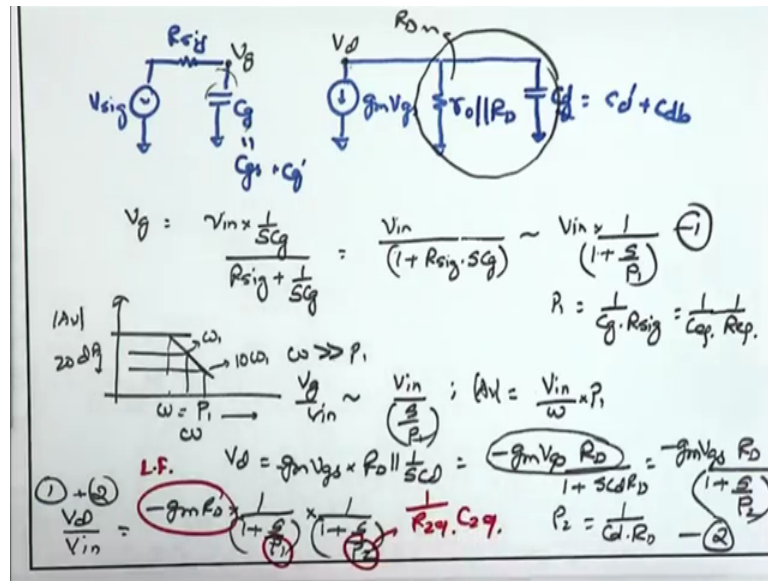 Rsig Vg Vd RDn
Vsig Cg gmVg ro||RD Cd = Cd' + Cdb
"
Cgs + Cg'
Vg = Vin × 1/SCg / Rsig + 1/SCg = Vin / (1 + Rsig · SCg) ~ Vin × 1 / (1 + S/P1) - 1
P1 = 1 / Cg · Rsig = 1/Ceq. 1/Req.
|Av|
20dB ω1 10ω1 ω >> P1
ω = P1
ω
Vg/Vin ~ Vin / (S/P1) ; |Av| = Vin/ω × P1
L.F. Vd = -gmVgs × RD || 1/SCd = -gmVgs RD / 1 + SCdRD = -gmVgs RD / (1 + S/P2)
1 + 2
Vd/Vin = -gmRD' × 1 / (1 + S/P1) × 1 / (1 + S/P2) 1 / R2q. C2q. P2 = 1 / Cd · RD - 2